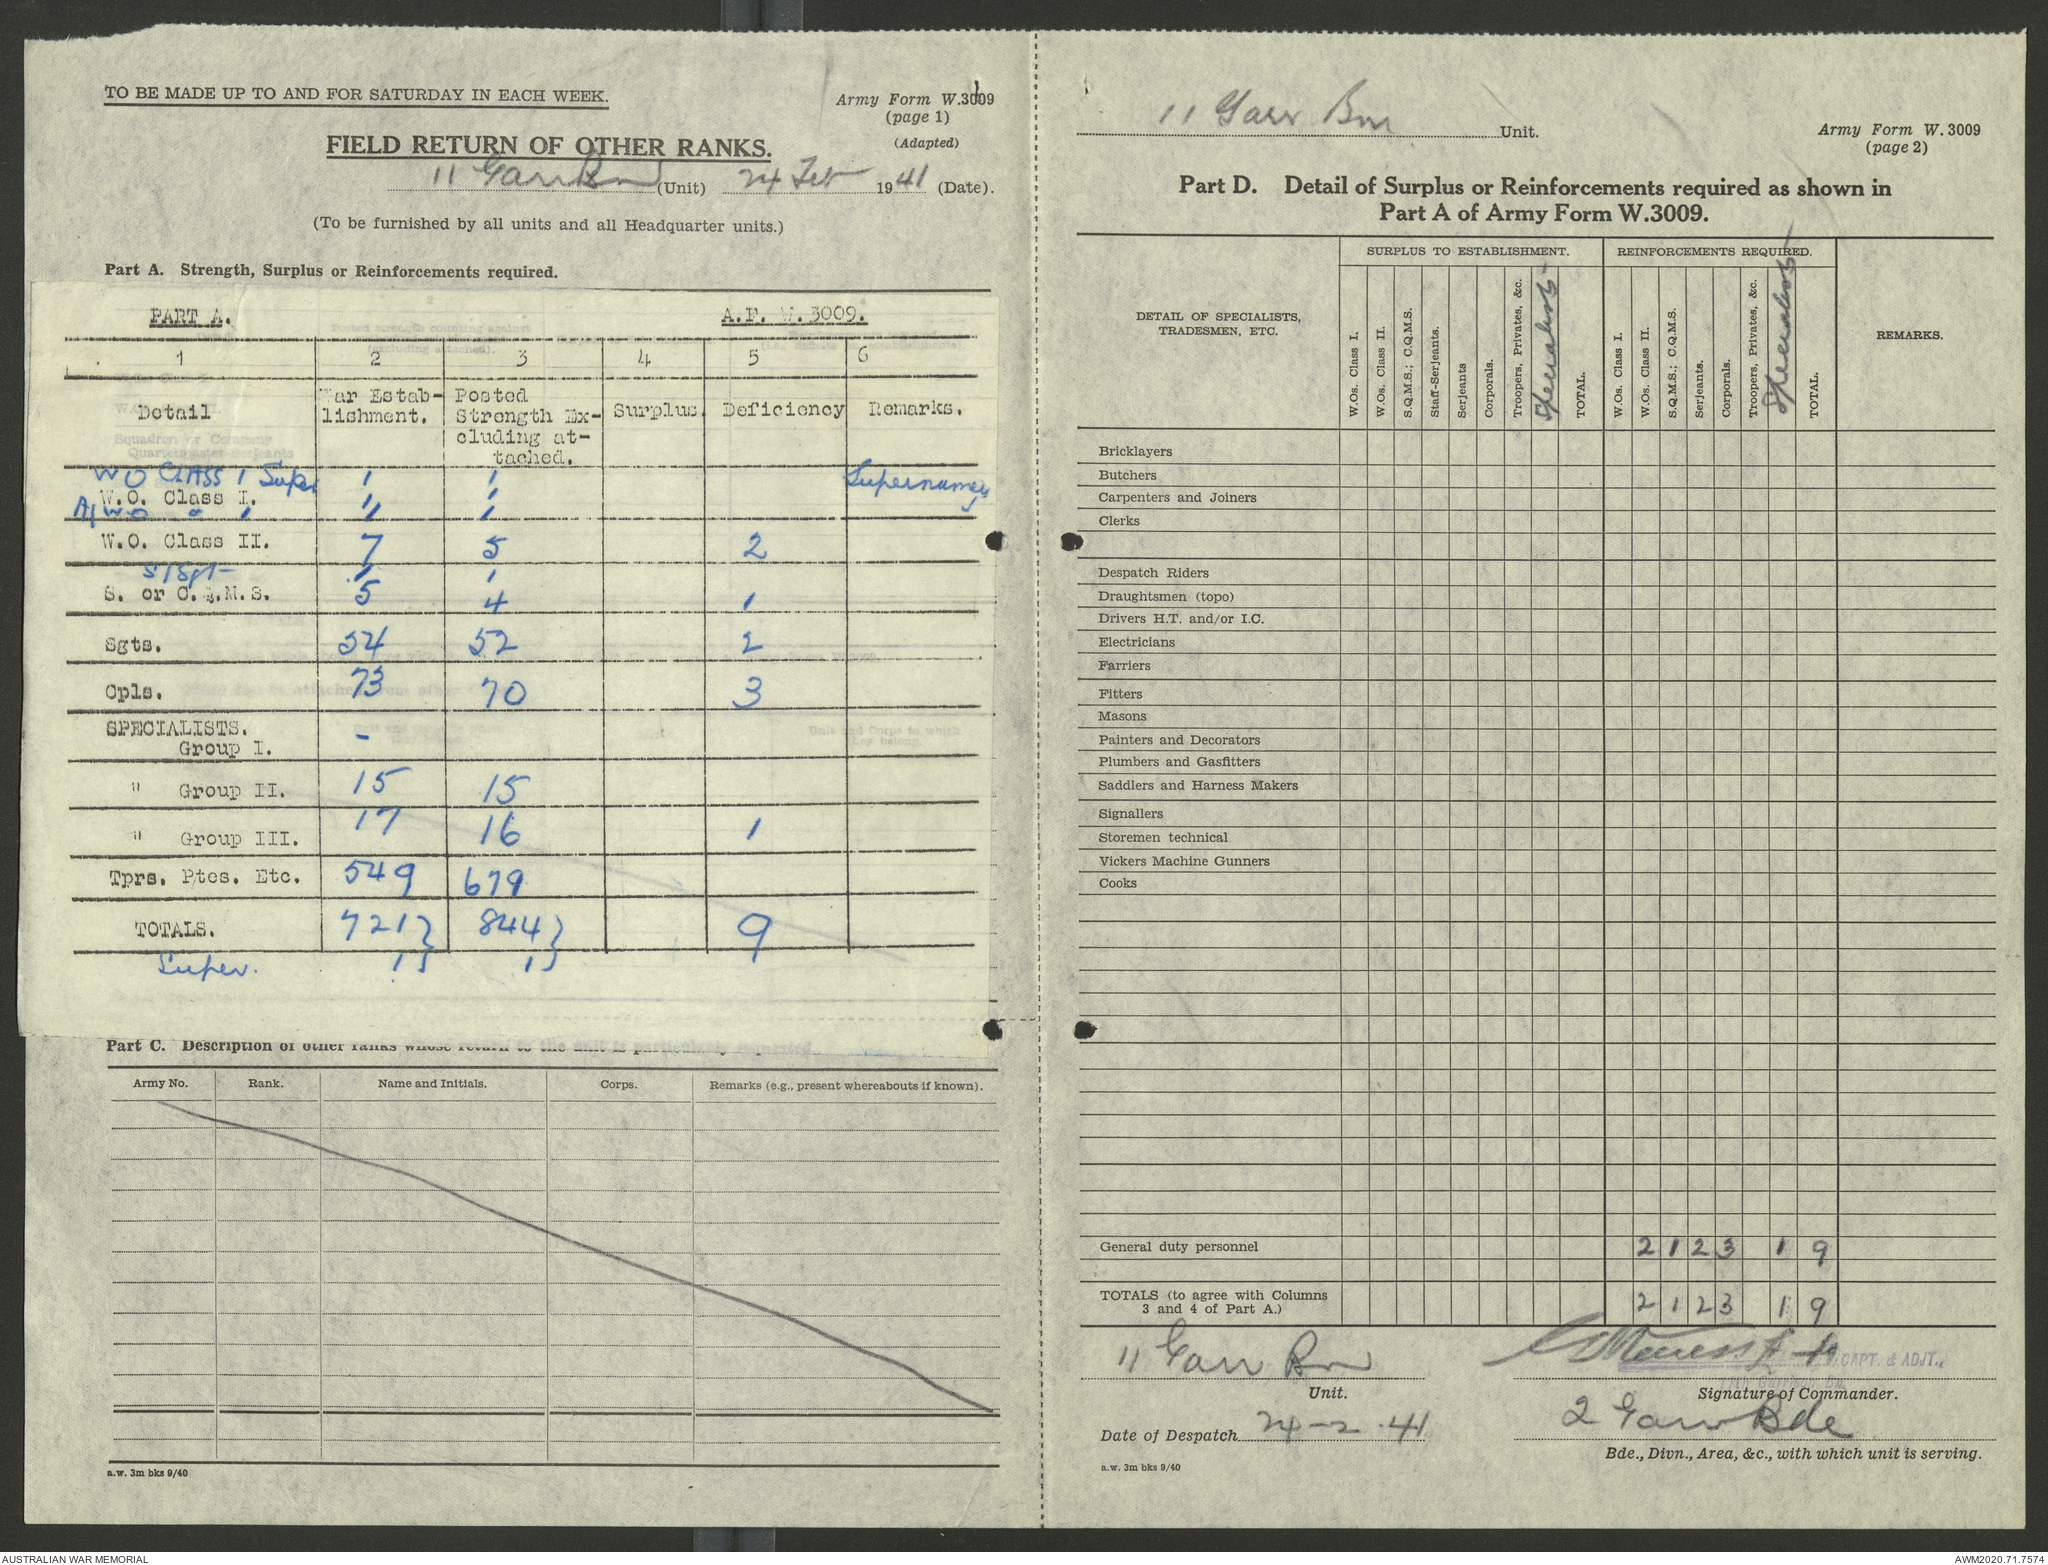 TO BE MADE UP TO AND FOR SATURDAY IN EACH WEEK.
Army Form W.3009
(page 1)
(Adapted)
FIELD RETURN OF OTHER RANKS.
11 Garr Bn (Unit) 24 Feb 1941 (Date).
(To be furnished by all units and all Headquarter units.)
Part A. Strength, Surplus or Reinforcements required.
PART A. A.F. W.3009.
1 2 3 4 5 6
Detail War Estab- Posted Surplus. Deficiency Remarks.
lishment. Strength Ex-
cluding at-
tached.
WO CLASS 1 Super 1 1 Supernumery
W.O. Class I. 1 1
A/WO " 1 1 1
W.O. Class II. 7 5 2
S/Sgt 1 1
S. or C.Q.M.S. 5 4 1
Sgts. 54 52 2
Cpls. 73 70 3
SPECIALISTS.
Group I. -
" Group II. 15 15
" Group III. 17 16 1
Tprs. Ptes. Etc. 549 679
TOTALS. 721} 844} 9
Super. 1} 1}
Part C. Description of other ranks whose return to the unit is particularly requested
Army No. Rank. Name and Initials. Corps. Remarks (e.g., present whereabouts if known).
a.w. 3m bks 9/40
11 Garr Bn Unit.
Army Form W.3009
(page 2)
Part D. Detail of Surplus or Reinforcements required as shown in
Part A of Army Form W.3009.
DETAIL OF SPECIALISTS,
TRADESMEN, ETC.
SURPLUS TO ESTABLISHMENT.
W.Os. Class I.
W.Os. Class II.
S.Q.M.S.; C.Q.M.S.
Staff-Serjeants.
Serjeants
Corporals.
Troopers, Privates, &c.
Specialists
TOTAL.
REINFORCEMENTS REQUIRED.
W.Os. Class I.
W.Os. Class II.
S.Q.M.S.; C.Q.M.S.
Serjeants.
Corporals.
Troopers, Privates, &c.
Specialists
TOTAL.
REMARKS.
Bricklayers
Butchers
Carpenters and Joiners
Clerks
Despatch Riders
Draughtsmen (topo)
Drivers H.T. and/or I.C.
Electricians
Farriers
Fitters
Masons
Painters and Decorators
Plumbers and Gasfitters
Saddlers and Harness Makers
Signallers
Storemen technical
Vickers Machine Gunners
Cooks
General duty personnel 2 1 2 3 1 9
TOTALS (to agree with Columns
3 and 4 of Part A.) 2 1 2 3 1 9
11 Garr Bn
Unit.
CAPT. & ADJT.,
Signature of Commander.
Date of Despatch 24-2-41
2 Garr Bde
Bde., Divn., Area, &c., with which unit is serving.
a.w. 3m bks 9/40
AUSTRALIAN WAR MEMORIAL
AWM2020.71.7574